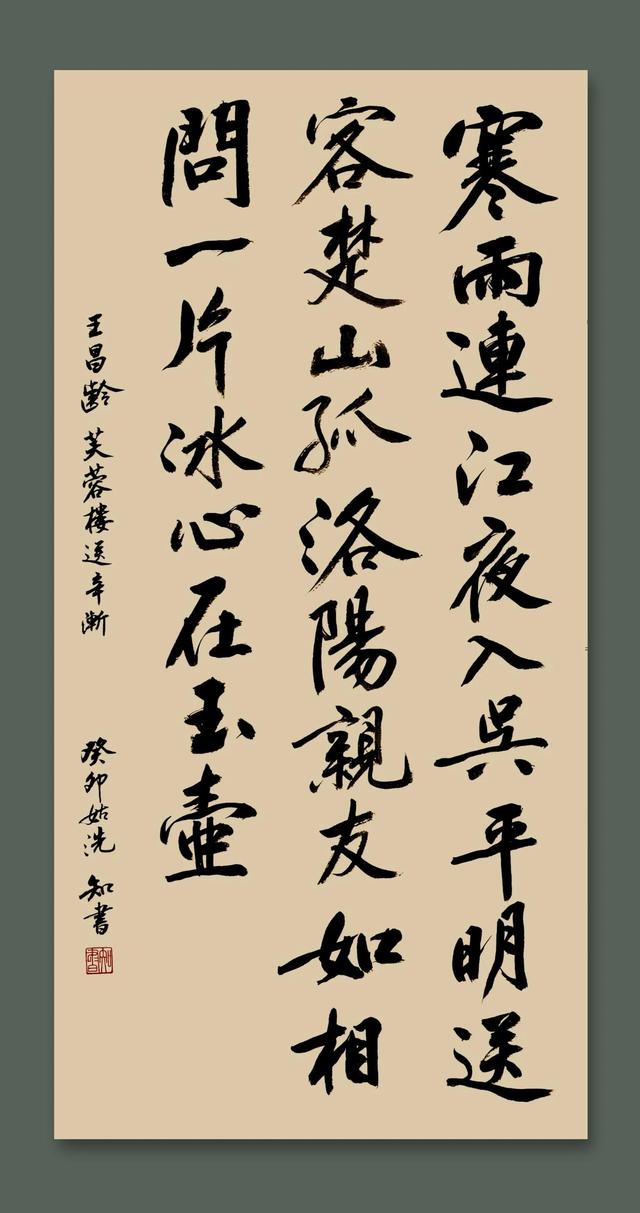 寒雨連江夜入吳平明送
客楚山孤洛陽親友如相
問一片冰心在玉壺
王昌齡芙蓉樓送辛漸
癸卯姑洗 知書